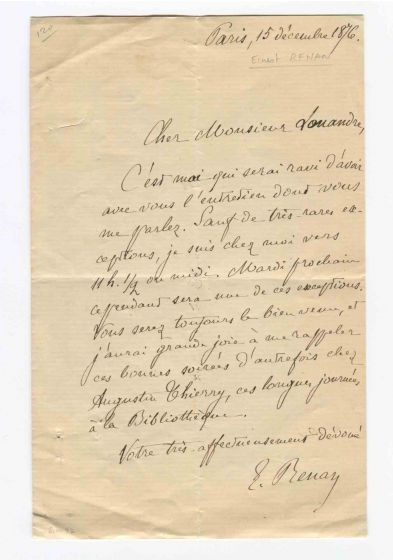 120
Paris, 15 décembre 1876.
Ernest RENAN
Cher Monsieur Louandre,
C'est moi qui serai ravi d'avoir
avec vous l'entretien dont vous
me parlez. Sauf de très rares ex-
ceptions, je suis chez moi vers
11 h. 1/2 ou midi. Mardi prochain
cependant sera une de ces exceptions.
Vous serez toujours le bien venu, et
j'aurai grande joie à me rappeler
ces bonnes soirées d'autrefois chez
Augustin Thierry, ces longues journées
à la Bibliothèque.
Votre très affectueusement dévoué
E. Renan